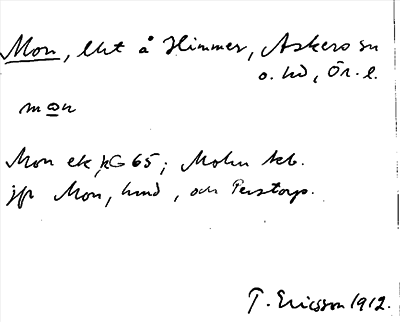 Mon, lht å Himmer, Askers sn
o. hd, Ör. l.
mon
Mon ek, kG 65; Mohn kb.
jfr Mon, hmd, och Perstorp.
T. Ericsson 1912.